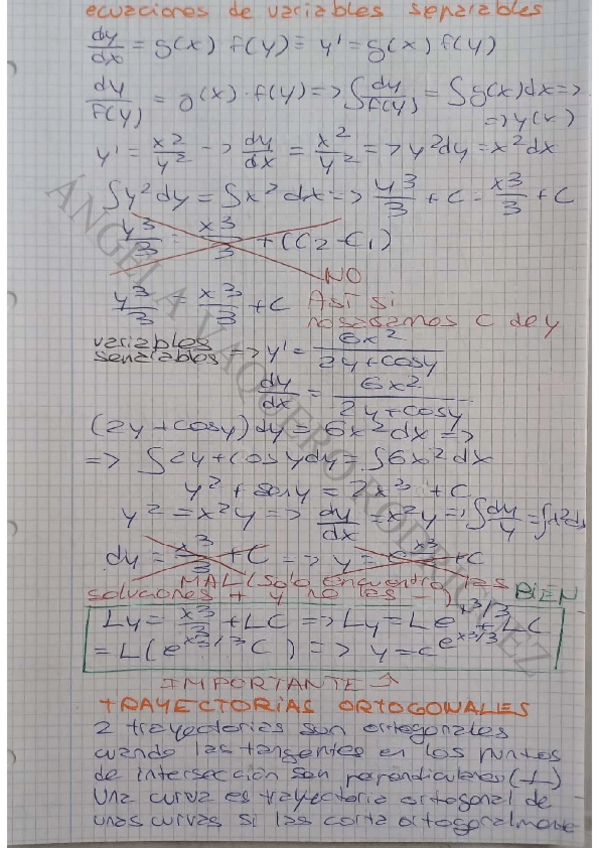 ecuaciones de variables separables
dy/dx = g(x) f(y) = y' = g(x) f(y)
dy/f(y) = g(x) · f(y) => ∫ dy/f(y) = ∫ g(x) dx =>
=> y(x)
y' = x²/y² -> dy/dx = x²/y² => y² dy = x² dx
∫ y² dy = ∫ x² dx => y³/3 + C = x³/3 + C
y³/3 = x³/3 + (C₂ - C₁)
NO
y³/3 = x³/3 + C Así si
no sacamos C de y
variables separables => y' = 6x²/2y+cosy
dy/dx = 6x²/2y+cosy
(2y+cosy) dy = 6x² dx =>
=> ∫ 2y+cosy dy = ∫ 6x² dx
y² + seny = 2x³ + C
y² = x²y => dy/dx = x²y => ∫ dy/y = ∫ x² dx
dy = x³/3 + C => y = e^x³/3 + C
MAL (solo encuentro las
soluciones + y no las -) BIEN
Ly = x³/3 + LC => Ly = L e^x³/3 + LC
= L(e^x³/3 C) => y = c e^x³/3
IMPORTANTE
TRAYECTORIAS ORTOGONALES
2 trayectorias son ortogonales
cuando las tangentes en los puntos
de intersección son perpendiculares (⊥)
Una curva es trayectoria ortogonal de
unas curvas si las corta ortogonalmente
ÁNGELA VAQUERO RODRÍGUEZ